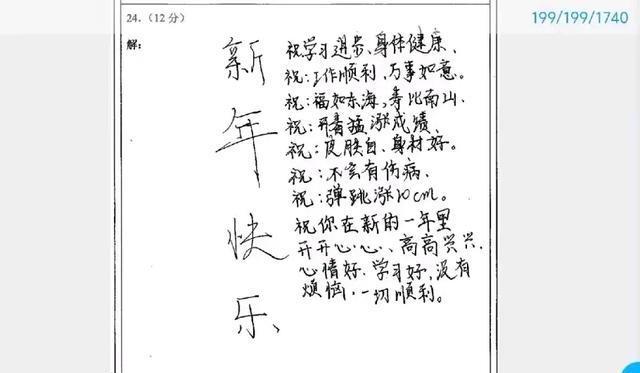 199/199/1740
24. (12分)
解:
新年快乐
祝学习进步、身体健康、
祝:工作顺利,万事如意。
祝:福如东海,寿比南山、
祝:开春猛涨成绩、
祝:皮肤白、身材好。
祝:不会有伤病、
祝:弹跳涨10cm。
祝你在新的一年里
开开心心、高高兴兴、
心情好.学习好,没有
烦恼.一切顺利。